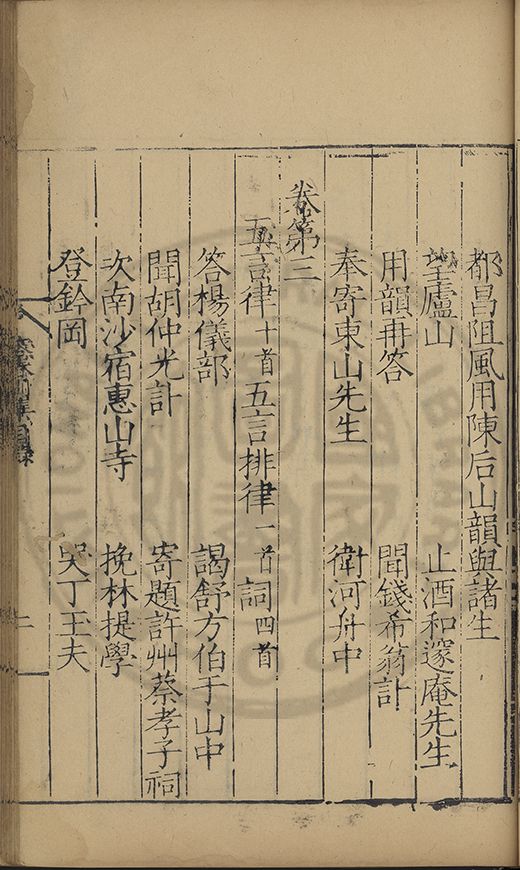 都昌阻風用陳后山韻與諸生
望廬山 止酒和邃庵先生
用韻再答 聞錢希翁訃
奉寄東山先生 衛河舟中
卷第三
五言律十首五言排律一首詞四首
答楊儀部 謁舒方伯于山中
聞胡仲光訃 寄題許州蔡孝子祠
次南沙宿惠山寺 挽林提學
登鈐岡 哭丁玉夫
二